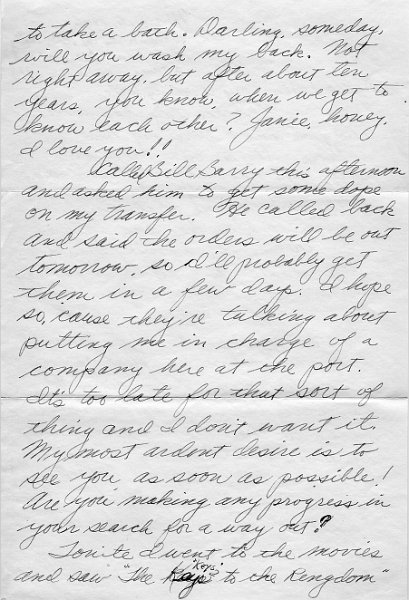 to take a bath. Darling, someday,
will you wash my back. Not
right away, but after about ten
years, you know, when we get to
know each other? Janie, honey
I love you!!
Called Bill Barry this afternoon
and asked him to get some dope
on my transfer. He called back
and said the orders will be out
tomorrow, so I'll probably get
them in a few days. I hope
so, cause they're talking about
putting me in charge of a
company here at the port.
It's too late for that sort of
thing and I don't want it.
My most ardent desire is to
see you as soon as possible!
Are you making any progress in
your search for a way out?
Tonite I went to the movies
Keys
and saw "The Keys to the Kingdom"